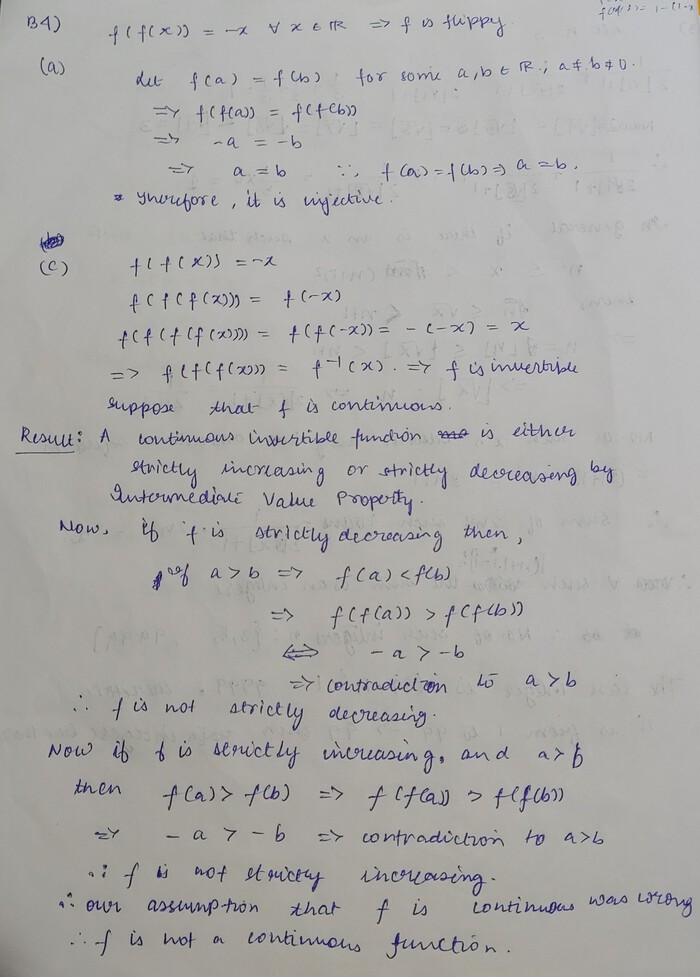 B4) f(f(x)) = -x ∀ x ∈ ℝ => f is flippy.
(a) Let f(a) = f(b) for some a, b ∈ ℝ ; a ≠ b ≠ 0.
=> f(f(a)) = f(f(b))
=> -a = -b
=> a = b ∵ f(a) = f(b) => a = b.
Therefore, it is injective.
(c) f(f(x)) = -x
f(f(f(x))) = f(-x)
f(f(f(f(x)))) = f(f(-x)) = -(-x) = x
=> f(f(f(x))) = f⁻¹(x). => f is invertible
Suppose that f is continuous.
Result: A continuous invertible function is either
strictly increasing or strictly decreasing by
Intermediate Value Property.
Now, if f is strictly decreasing then,
if a > b => f(a) < f(b)
=> f(f(a)) > f(f(b))
<=> -a > -b
=> contradiction to a > b
∴ f is not strictly decreasing.
Now if f is strictly increasing, and a > b
then f(a) > f(b) => f(f(a)) > f(f(b))
=> -a > -b => contradiction to a > b
∴ f is not strictly increasing.
∴ our assumption that f is continuous was wrong
∴ f is not a continuous function.